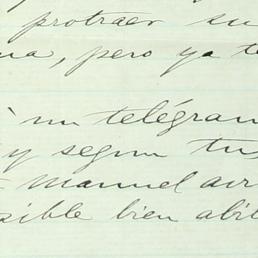 protraer su
na, pero ya te
è un telégram
y segun tus
Manuel avi
sible bien abil